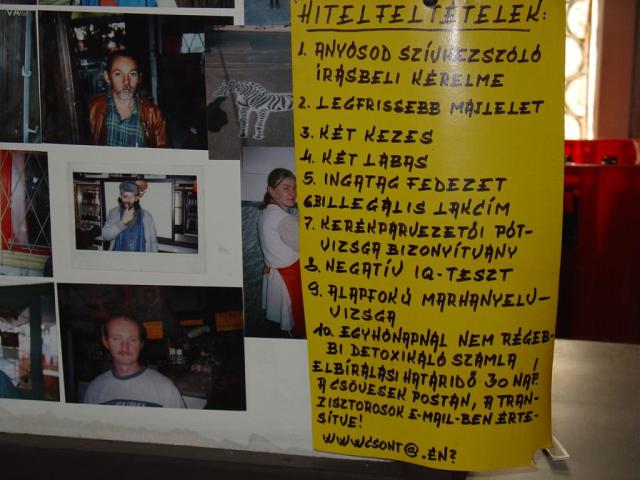 VA©
HITELFELTÉTELEK:
1. ANYÓSOD SZÍVHEZSZÓLÓ
ÍRÁSBELI KÉRELME
2. LEGFRISSEBB MÁJLELET
3. KÉT KEZES
4. KÉT LÁBAS
5. INGATAG FEDEZET
6. BILLEGÁLIS LAKCÍM
7. KERÉKPÁRVEZETŐI PÓT-
VIZSGA BIZONYÍTVÁNY
8. NEGATÍV IQ-TESZT
9. ALAPFOKÚ MARHANYELV-
VIZSGA
10. EGYHÓNAPNÁL NEM RÉGEB-
BI DETOXIKÁLÓ SZÁMLA !
ELBÍRÁLÁSI HATÁRIDŐ 30 NAP.
A CSÖVESEK POSTÁN, A TRAN-
ZISZTOROSOK E-MAIL-BEN ÉRTE-
SÍTVE!
WWWCSONT@.ÉN?